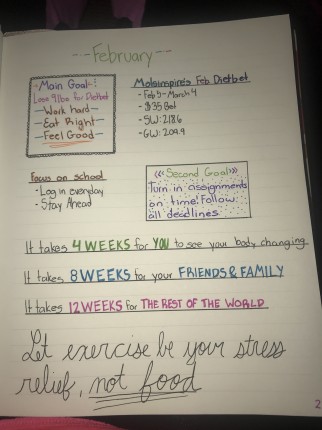 ---February---
-Main Goal-:
Lose 9lbs for Dietbet
-Work hard-
-Eat Right-
-Feel Good-
Molsimpire's Feb Dietbet
- Feb 5-March 4
- $35 Bet
- SW: 218.6
- GW: 209.9
Focus on school
- Log in everyday
- Stay Ahead
Second Goal
Turn in assignments
on time! Follow
all deadlines
It takes 4 WEEKS for YOU to see your body changing
It takes 8 WEEKS for your FRIENDS & FAMILY
It takes 12 WEEKS for THE REST OF THE WORLD
Let exercise be your stress
relief, not food
2